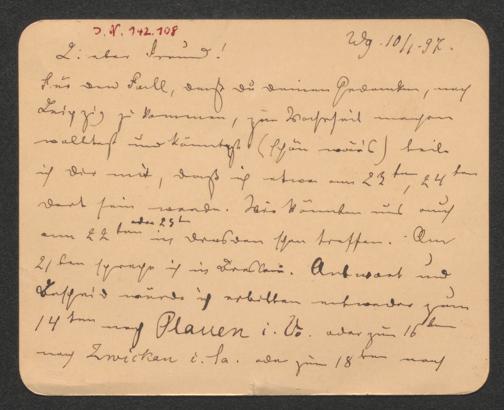 J. N. 142.108
Wg. 10/1. 97.
Lieber Freund!
Für den Fall, daß du deinen Gedanken, nach
Leipzig zu kommen, zur Wahrheit machen
wolltest und könntest (schön wär's) teile
ich dir mit, daß ich etwa am 23ten, 24ten
dort sein werde. Wir könnten uns auch
am 22ten oder 23t in Dresden schon treffen. Am
21ten spreche ich in Breslau. Antwort und
Bescheid würde ich erbitten entweder zum
14ten nach Plauen i. Vo. oder zum 16ten
nach Zwickau i. Sa. oder zum 18ten nach